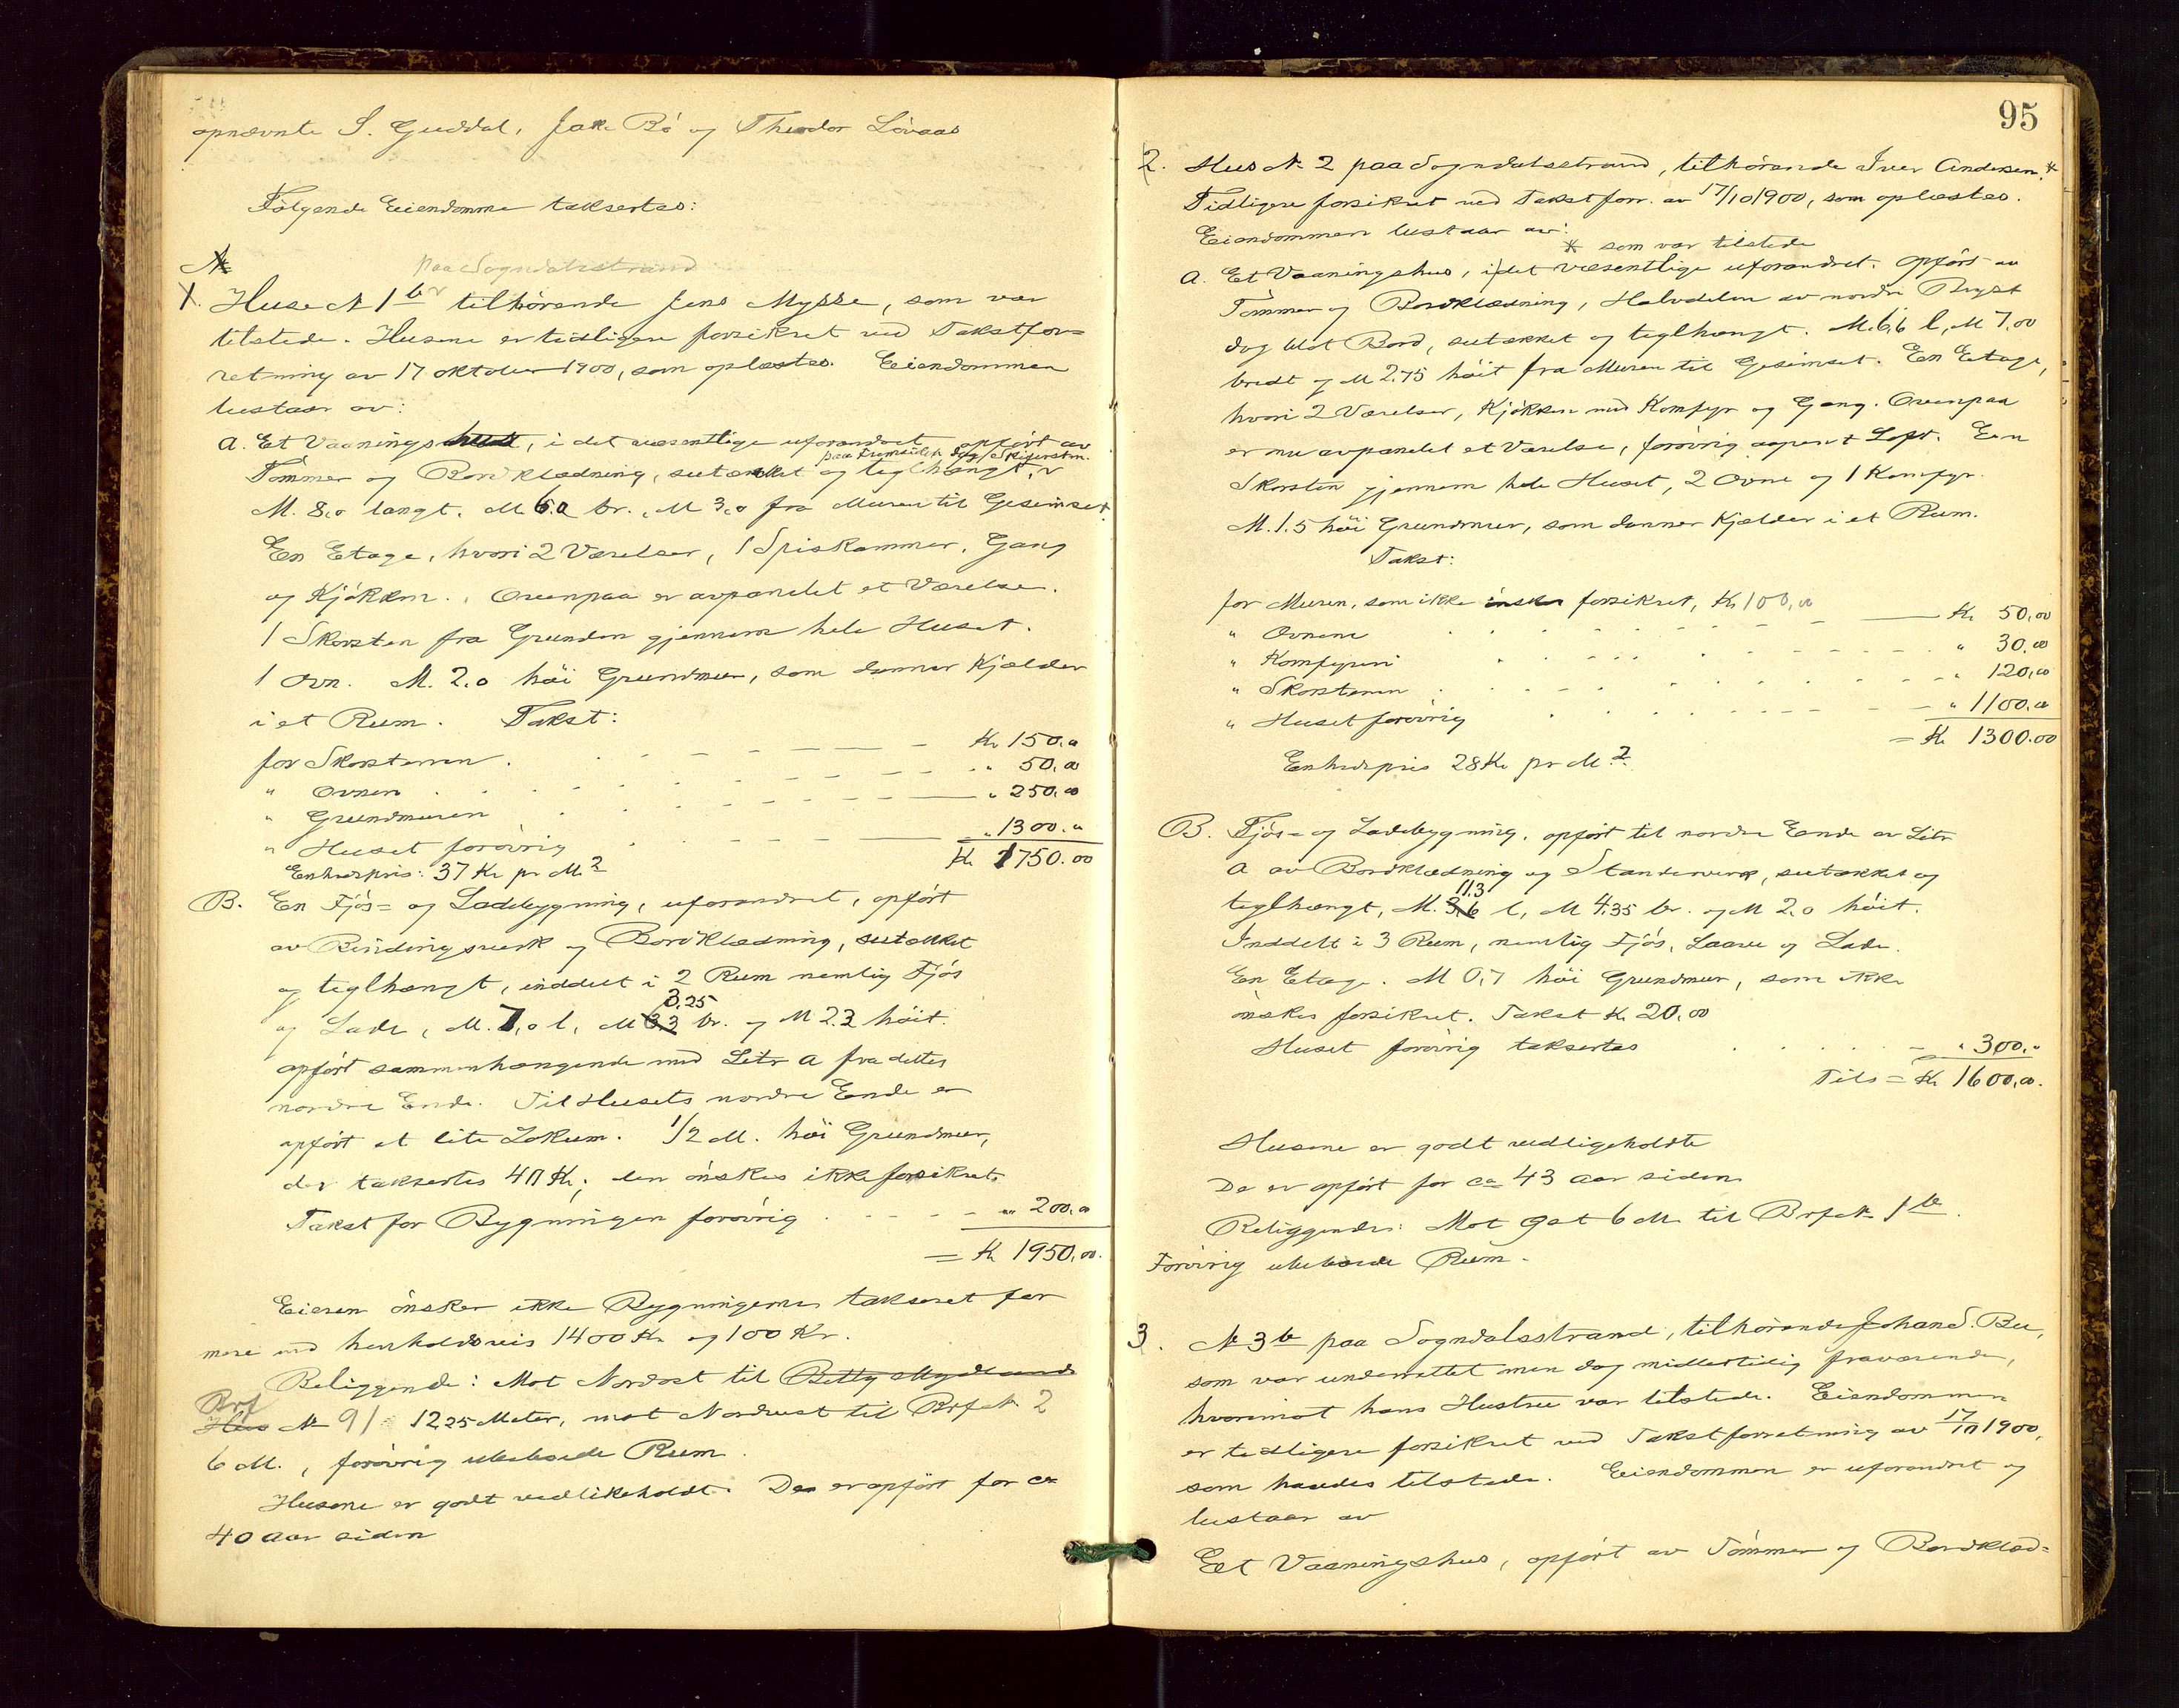 opnævnte S. Guddal, Jak. Bö og Theodor Lövaas
Fölgende Eiendomme taksertes:
№
paa Sogndalsstrand
1. Huse № 1 b tilhörende Jens Mysse, som var
tilstede. Husene er tidligere forsikret ved Takstfor=
retning av 17 oktober 1900, som oplæstes. Eiendommen
bestaar av:
a. Et Vaaningshus, i det væsentlige uforandret, opfört av
paa Fremsiden dog Skifersten.
Tömmer og Bordklædning, sutækket og teglhængt,
M. 8,0 langt, M. 6.0 br., M 3,0 fra Muren til Gesimset.
En Etage, hvori 2 Værelser, 1 Spiskammer, Gang
og Kjökken. Ovenpaa er avpanelet et Værelse.
1 Skorsten fra Grunden gjennem hele Huset.
1 Ovn. M. 2,0 höi Grundmur, som danner Kjælder
i et Rum. Takst:
for Skorstenen . Kr 150,00
" Ovnen " 50,00
" Grundmuren " 250,00
" Huset forövrig " 1300,00
Enhedspris: 37 Kr pr M.2 Kr 1750.00
B. En Fjös= og Ladebygning, uforandret, opfört
av Bindingsverk og Bordklædning, sutækket
og teglhængt, inddelt i 2 Rum nemlig Fjös
3,25
og Lade, M. 7,0 l, M 3,3 br. og M 2.2 höit.
opfört sammenhængende med Litr a fra dettes
nordre Ende. Til Husets nordre Ende er
opfört et lite Lokum. 1/2 M. höi Grundmur,
der taksertes 40 Kr; den önskes ikke forsikret.
Takst for Bygningen forövrig " 200,00
= Kr 1950,00.
Eieren önsker ikke Bygningerne taksert for
mere end henholdsvis 1400 Kr og 100 Kr.
Beliggende: Mot Nordost til Betty Mydland
Brf
Hus № 91 12,25 Meter, mot Nordvest til Brf. № 2
6 M., forövrig ubebodde Rum.
Husene er godt vedlikeholdt. De er opfört for ca
40 aar siden
95
2. Hus № 2 paa Sogndalsstrand, tilhörende Iver Andersen.*
Tidligere forsikret ved Takstforr. av 17/10 1900, som oplæstes.
Eiendommen bestaar av:
* som var tilstede
a. Et Vaaningshus, i det væsentlige uforandret. Opfört av
Tömmer og Bordklædning, Halvdelen av nordre Bryst
dog blot Bord, sutækket og teglhængt. M. 6,6 l, M 7,00
bredt og M 2.75 höit fra Muren til Gesimset. En Etage,
hvori 2 Værelser, Kjökken med Komfyr og Gang. Ovenpaa
er nu avpanelet et Værelse, forövrig aapent Loft. Een
Skorsten gjennem hele Huset, 2 Ovne og 1 Komfyr.
M. 1.5 höi Grundmur, som danner Kjælder i et Rum.
Takst:
for Muren, som ikke önskes forsikret, Kr 100,00
" Ovnene Kr 50,00
" Komfyren " 30,00
" Skorstenen " 120,00
" Huset forövrig " 1100,00
= Kr 1300.00
Enhedspris 28 Kr pr M.2
B. Fjös= og Ladebygning, opfört til nordre Ende av Litr
a av Bordklædning og Standerverk, sutækket og
11,3
teglhængt, M. 3,6 l, M 4,35 br. og M 2,0 höit.
Inddelt i 3 Rum, nemlig Fjös, Laave og Lade.
En Etage. M 0,7 höi Grundmur, som ikke
önskes forsikret. Takst Kr 20,00
Huset forövrig taksertes " 300,"
Tils = Kr 1600,00.
Husene er godt vedligeholdte
De er opfört for ca 43 aar siden
Beliggende: Mot Ost 6 M. til Brf. № 1 b.
Forövrig ubebodde Rum.
3. № 3 b paa Sogndalsstrand, tilhörende Johan S. Bu,
som var underrettet men dog midlertidig fraværende,
hvorimot hans Hustru var tilstede. Eiendommen
er tidligere forsikret ved Takstforretning av 17/10 1900,
som havdes tilstede. Eiendommen er uforandret og
bestaar av
Et Vaaningshus, opfört av Tömmer og Bordklæd=